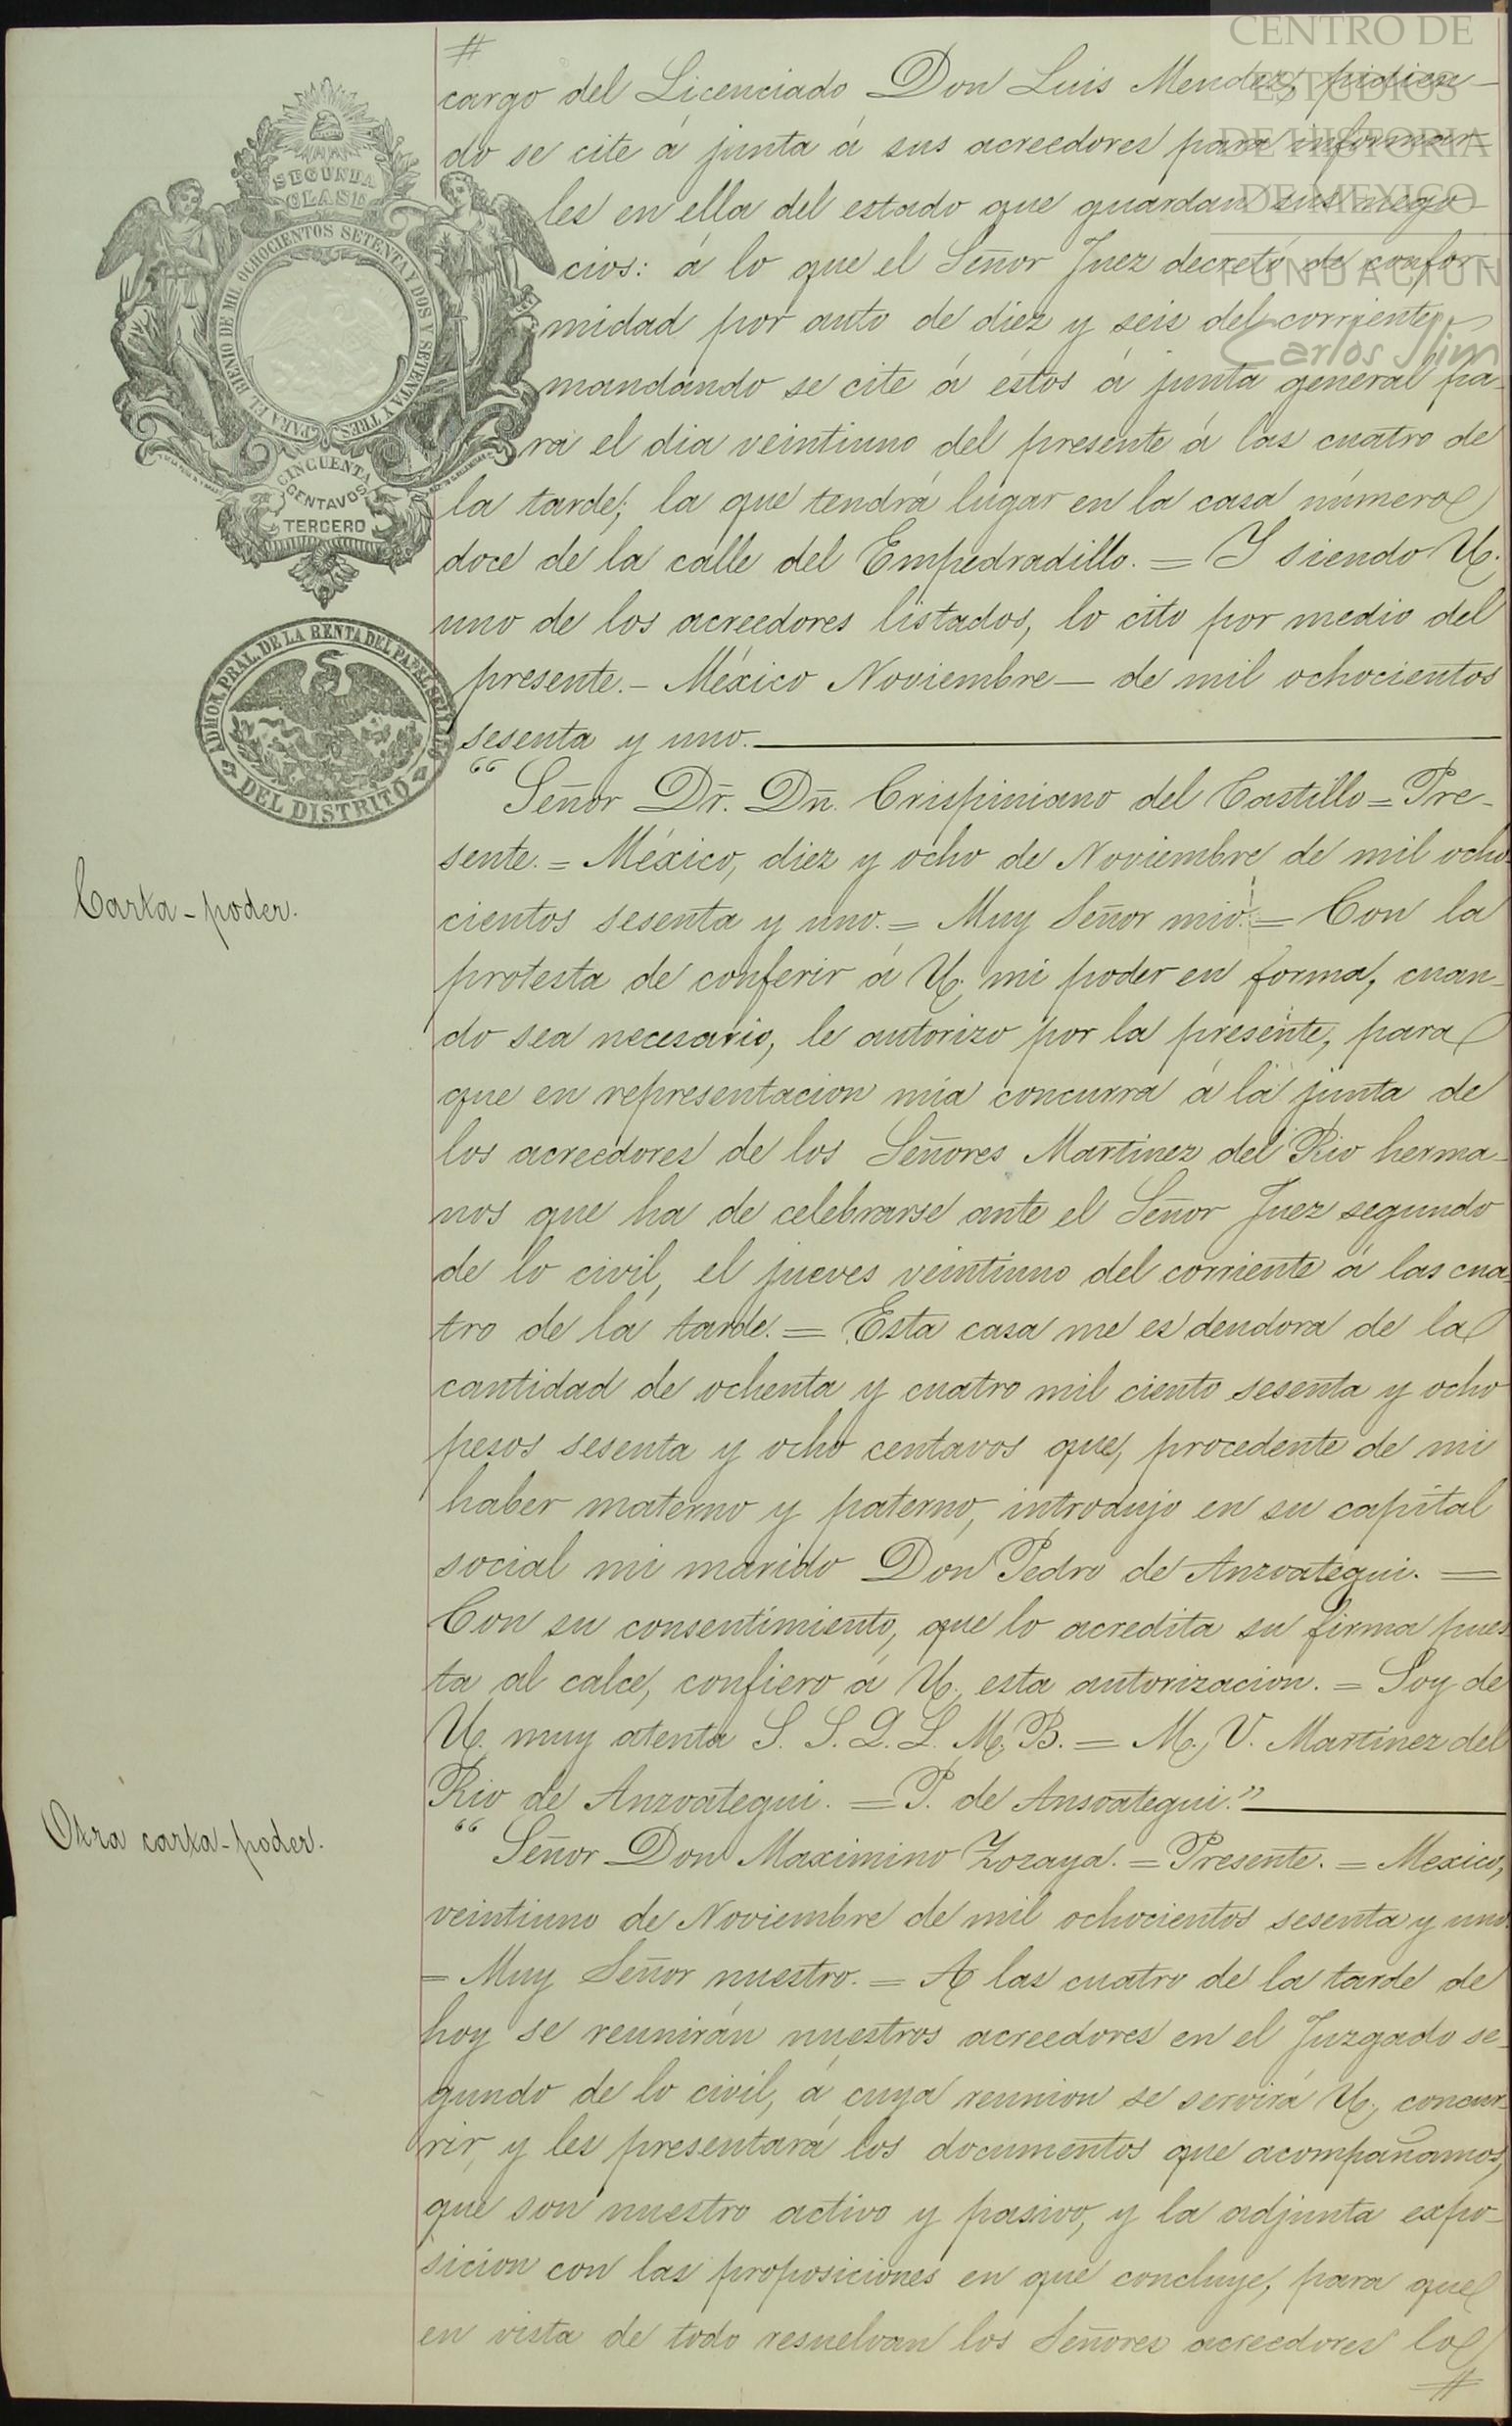 CENTRO DE
ESTUDIOS
DE HISTORIA
DE MEXICO
FUNDACION
Carlos Slim
SEGUNDA
CLASE
PARA EL BIENIO DE MIL OCHOCIENTOS SETENTA Y DOS Y SETENTA Y TRES
CINCUENTA
CENTAVOS
TERCERO
ADMON. PRAL. DE LA RENTA DEL PAPEL SELLADO
DEL DISTRITO
#
cargo del Licenciado Don Luis Mendez, pidien-
do se cite á junta á sus acreedores para informar-
les en ella del estado que guardan sus nego-
cios: á lo que el Señor Juez decretó de confor-
midad por auto de diez y seis del corriente,
mandando se cite á éstos á junta general pa-
ra el dia veintiuno del presente á las cuatro de
la tarde; la que tendrá lugar en la casa número
doce de la calle del Empedradillo. = Y siendo U.
uno de los acreedores listados, lo cito por medio del
presente. - México Noviembre — de mil ochocientos
sesenta y uno.
Carta-poder.
“Señor Dr. Dn. Crispiniano del Castillo = Pre-
sente. = México, diez y ocho de Noviembre de mil ocho
cientos sesenta y uno. = Muy Señor mio: = Con la
protesta de conferir á U. mi poder en forma, cuan-
do sea necesario, le autorizo por la presente, para
que en representacion mia concurra á la junta de
los acreedores de los Señores Martinez del Rio herma-
nos que ha de celebrarse ante el Señor Juez segundo
de lo civil, el jueves veintiuno del corriente á las cua-
tro de la tarde. = Esta casa me es deudora de la
cantidad de ochenta y cuatro mil ciento sesenta y ocho
pesos sesenta y ocho centavos que, procedente de mi
haber materno y paterno, introdujo en su capital
social mi marido Don Pedro de Anzoategui. =
Con su consentimiento, que lo acredita su firma pues
ta al calce, confiero á U. esta autorizacion. = Soy de
U. muy atenta S. S. Q. L. M. B. = M. V. Martinez del
Rio de Anzoategui. = P. de Ansoategui.”
Otra carta-poder.
“Señor Don Maximino Zozaya. = Presente. = Mexico,
veintiuno de Noviembre de mil ochocientos sesenta y uno.
= Muy Señor nuestro. = A las cuatro de la tarde de
hoy se reunirán nuestros acreedores en el Juzgado se-
gundo de lo civil, á cuya reunion se servirá U. concur-
rir, y les presentará los documentos que acompañamos,
que son nuestro activo y pasivo, y la adjunta expo-
sicion con las proposiciones en que concluye, para que
en vista de todo resuelvan los Señores acreedores lo
#